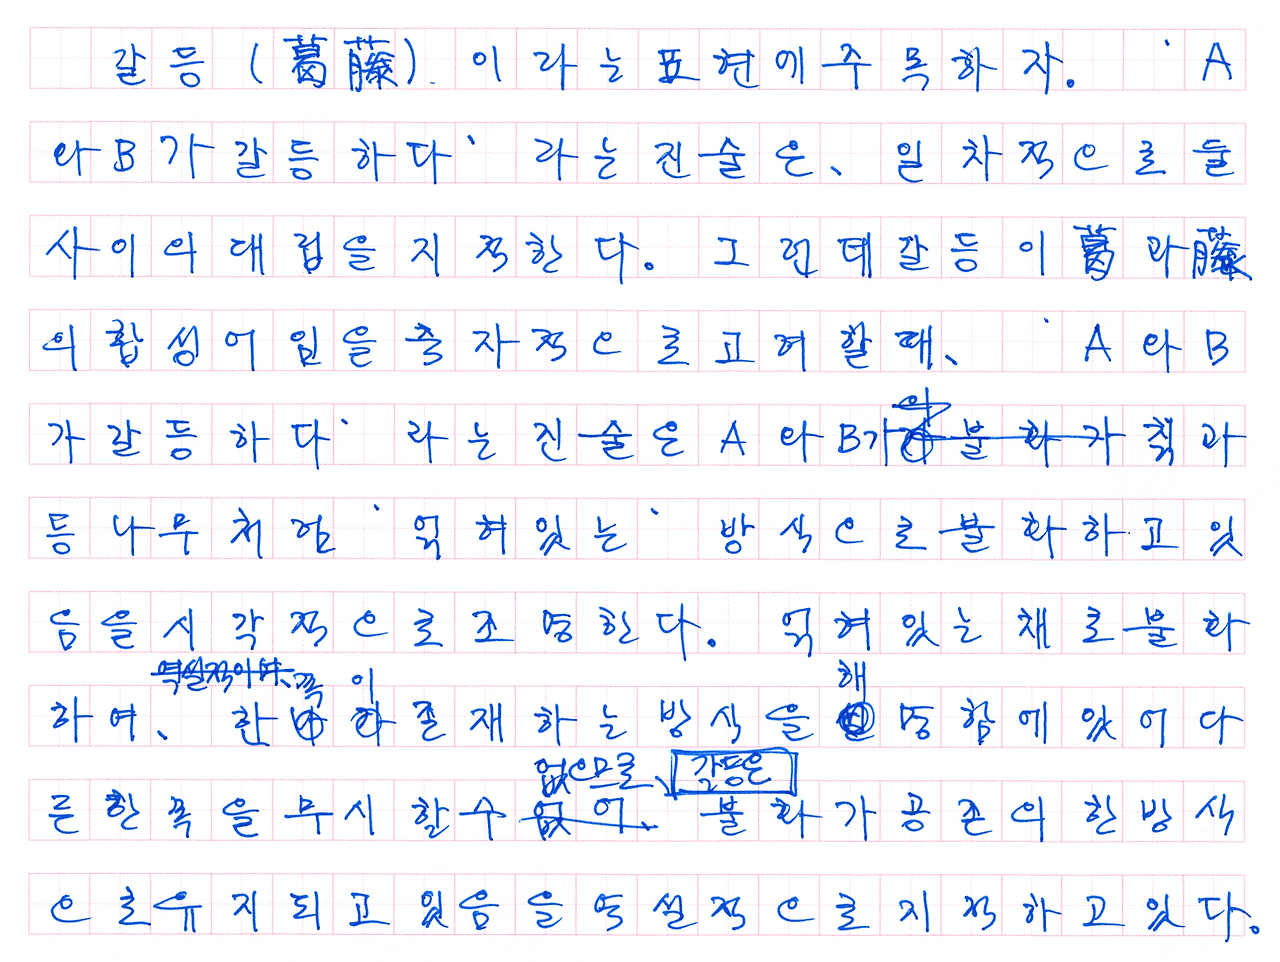 갈등(葛藤)이라는 표현에 주목하자. 'A
와 B가 갈등하다' 라는 진술은, 일차적으로 둘
사이의 대립을 지적한다. 그런데 갈등이 葛과 藤
의 합성어임을 축자적으로 고려할 때, 'A와 B
가 갈등하다' 라는 진술은 A와 B가 불화가 칡과
등나무처럼 '얽혀있는' 방식으로 불화하고 있
음을 시각적으로 조명한다. 얽혀있는 채로 불화
역설적이뿐, 쪽 이 해
하여, 한 존재하는 방식을 명함에 있어 다
없으므로, 갈등은
른 한쪽을 무시할 수 없어. 불화가 공존의 한 방식
으로 유지되고 있음을 역설적으로 지적하고 있다.